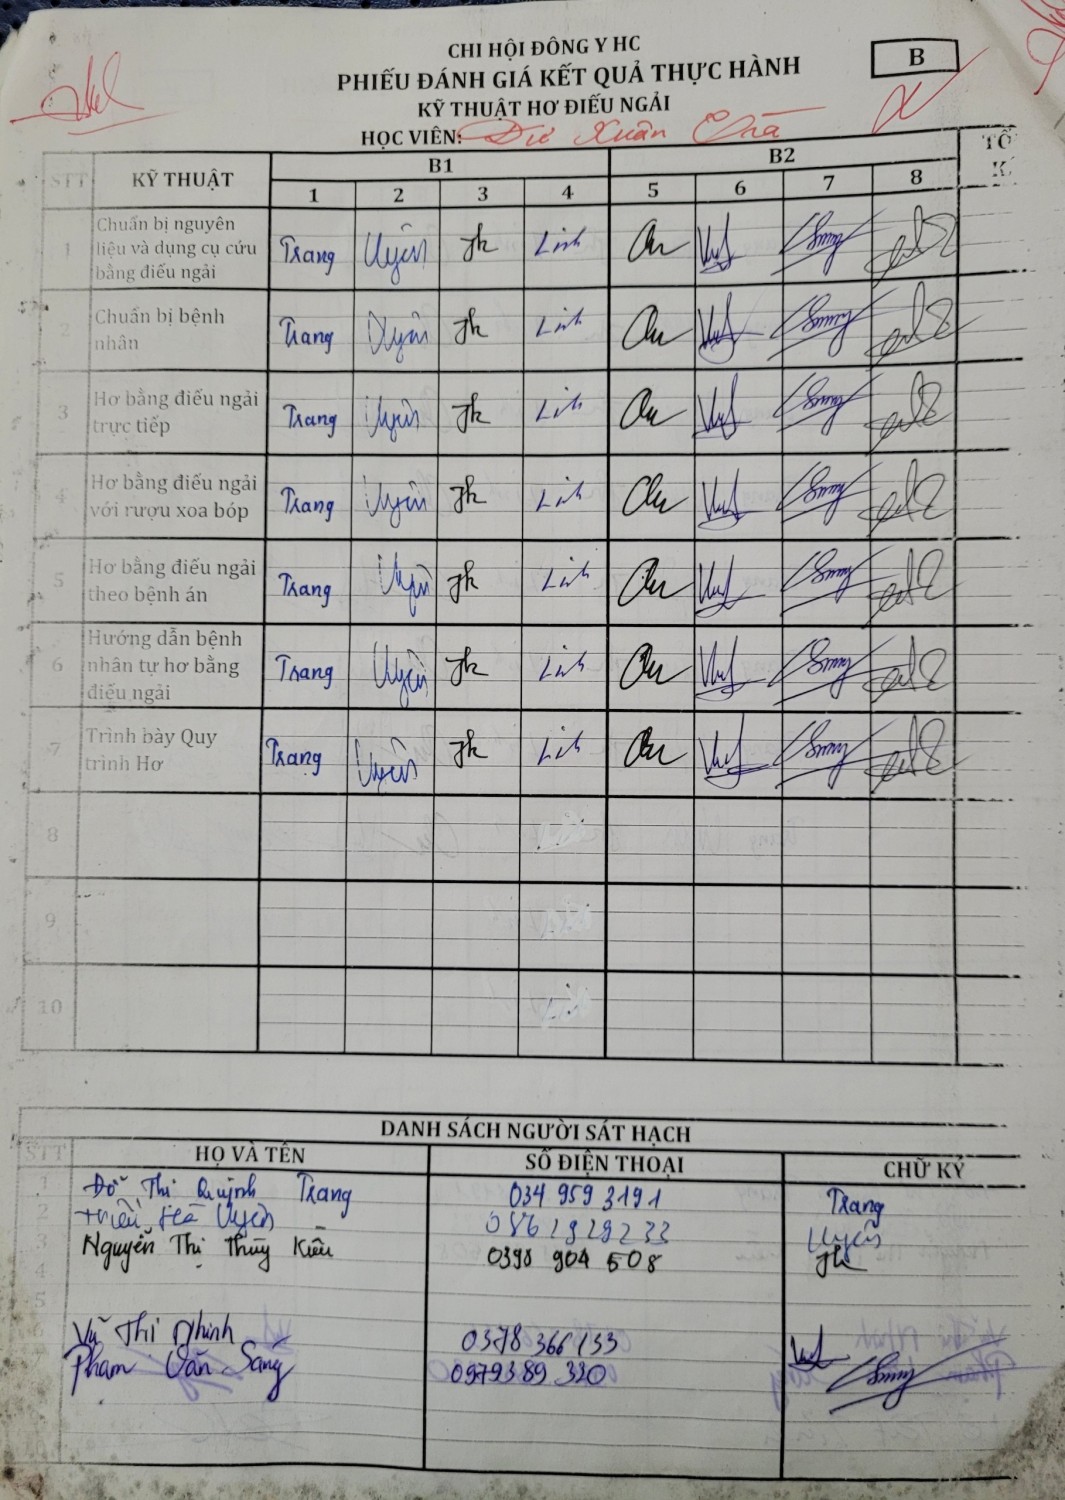 CHI HỘI ĐÔNG Y HC
PHIẾU ĐÁNH GIÁ KẾT QUẢ THỰC HÀNH
B
KỸ THUẬT HƠ ĐIẾU NGẢI
HỌC VIÊN: Xuân
STT KỸ THUẬT B1 B2
1 2 3 4 5 6 7 8
1 Chuẩn bị nguyên
liệu và dụng cụ cứu
bằng điếu ngải
Trang Uyên Linh
2 Chuẩn bị bệnh
nhân
Trang Uyên Linh
3 Hơ bằng điếu ngải
trực tiếp
Trang Uyên Linh
4 Hơ bằng điếu ngải
với rượu xoa bóp
Trang Uyên Linh
5 Hơ bằng điếu ngải
theo bệnh án
Trang Uyên Linh
6 Hướng dẫn bệnh
nhân tự hơ bằng
điếu ngải
Trang Uyên Linh
7 Trình bày Quy
trình Hơ
Trang Uyên Linh
8
9
10
DANH SÁCH NGƯỜI SÁT HẠCH
STT HỌ VÀ TÊN SỐ ĐIỆN THOẠI CHỮ KÝ
1 Đỗ Thị Quỳnh Trang 034 959 3191 Trang
2 Triệu Hà Uyên 0862929233 Uyên
3 Nguyễn Thị Thúy Kiều 0398 904 508
4
5
6 Vũ Thị Nhinh 0378366133
7 Phạm Văn Sang 0979389 330